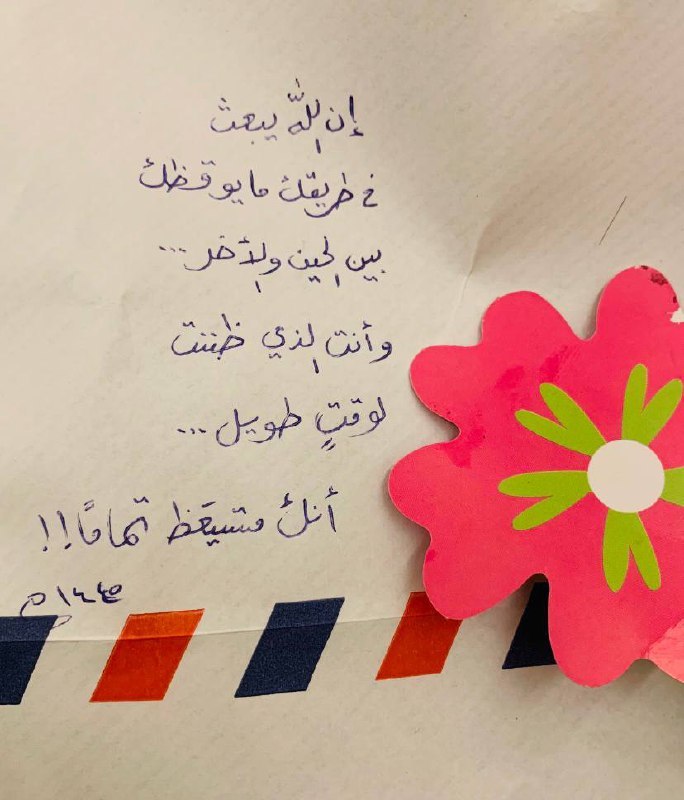 إن الله يبعث
في طريقك ما يوقظك
بين الحين والآخر...
وأنت الذي ظننت
لوقتٍ طويل...
أنك مستيقَظ تمامًا!!
١٤٤٥هـ